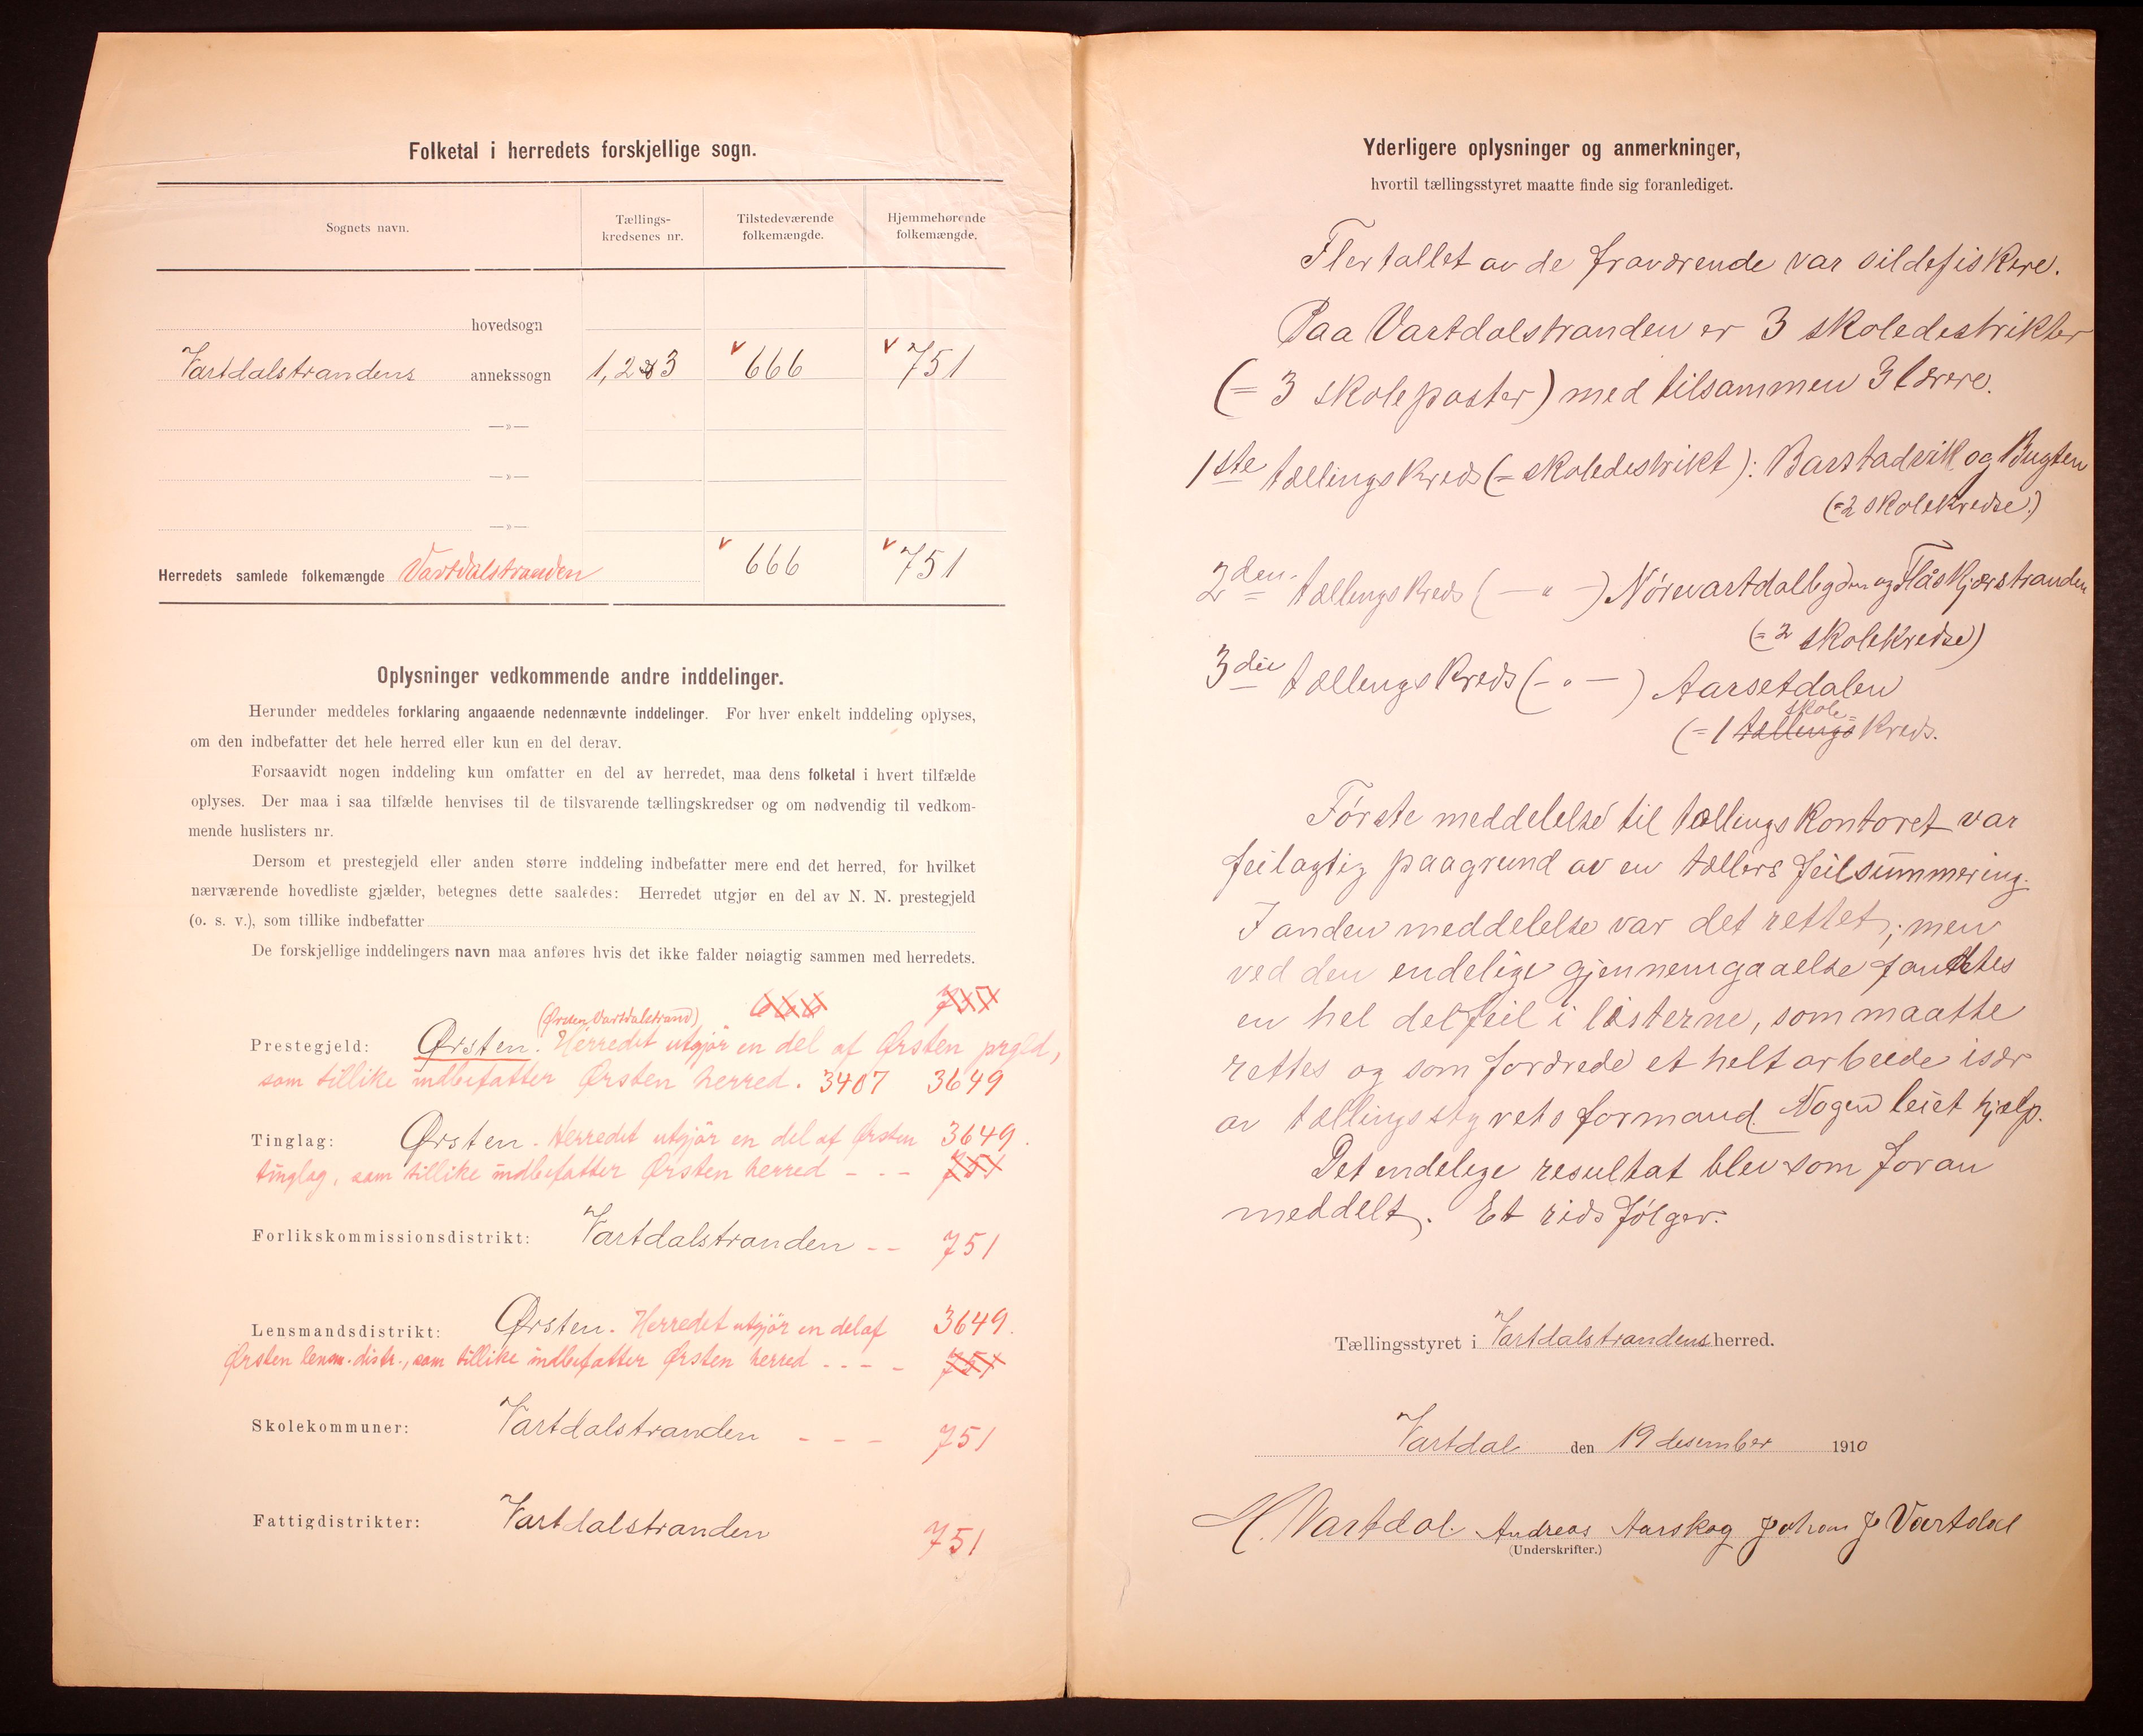 Folketal i herredets forskjellige sogn.
Sognets navn. Tællings-kredsenes nr. Tilstedeværende folkemængde. Hjemmehørende folkemængde.
hovedsogn
Vartdalstrandens annekssogn 1, 2 & 3 v 666 v 751
—»—
—»—
—»—
Herredets samlede folkemængde Vartdalstranden v 666 v 751
Oplysninger vedkommende andre inddelinger.
Herunder meddeles forklaring angaaende nedennævnte inddelinger. For hver enkelt inddeling oplyses,
om den indbefatter det hele herred eller kun en del derav.
Forsaavidt nogen inddeling kun omfatter en del av herredet, maa dens folketal i hvert tilfælde
oplyses. Der maa i saa tilfælde henvises til de tilsvarende tællingskredser og om nødvendig til vedkom-
mende huslisters nr.
Dersom et prestegjeld eller anden større inddeling indbefatter mere end det herred, for hvilket
nærværende hovedliste gjælder, betegnes dette saaledes: Herredet utgjør en del av N. N. prestegjeld
(o. s. v.), som tillike indbefatter
De forskjellige inddelingers navn maa anføres hvis det ikke falder nøiagtig sammen med herredets.
(Ørsten, Vartdalstrand) 666 751
Prestegjeld: Ørsten. Herredet utgjör en del af Ørsten prgld,
som tillike indbefatter Ørsten herred. 3407 3649
Tinglag: Ørsten - Herredet utgjör en del af Ørsten 3649.
tinglag, som tillike indbefatter Ørsten herred - - - 751
Forlikskommissionsdistrikt: Vartdalstranden - - 751
Lensmandsdistrikt: Ørsten. Herredet utgjör en del af 3649.
Ørsten lensm. distr., som tillike indbefatter Ørsten herred - - - - 751
Skolekommuner: Vartdalstranden - - - 751
Fattigdistrikter: Vartdalstranden 751
Yderligere oplysninger og anmerkninger,
hvortil tællingsstyret maatte finde sig foranlediget.
Flertallet av de fraværende var sildefiskere.
Paa Vartdalstranden er 3 skoledestrikter
(= 3 skoleposter) med tilsammen 3 lærere.
1ste tællingskreds (= skoledestrikt): Barstadvik og Bugten
(=2 skolekredse.)
2den tællingskreds (— " —) Nørevartdalbygden og Flåskjærstranden
(= 2 skolekredse)
3die tællingskreds (- " —) Aarsetdalen
skole-
(= 1 tællings kreds.
Første meddelelse til tællingskontoret var
feilagtig paagrund av en tællers feilsummering.
I anden meddelelse var det rettet; men
ved den endelige gjennemgaaelse fandtes
en hel del feil i listerne, som maatte
rettes og som fordrede et helt arbeide især
av tællingsstyrets formand. Nogen leiet hjælp.
Det endelige resultat blev som foran
meddelt. Et rids følger.
Tællingsstyret i Vartdalstrandens herred.
Vartdal den 19 desember 1910
H. Vartdal. Andreas Aarskog Johan J Vartdal
(Underskrifter.)